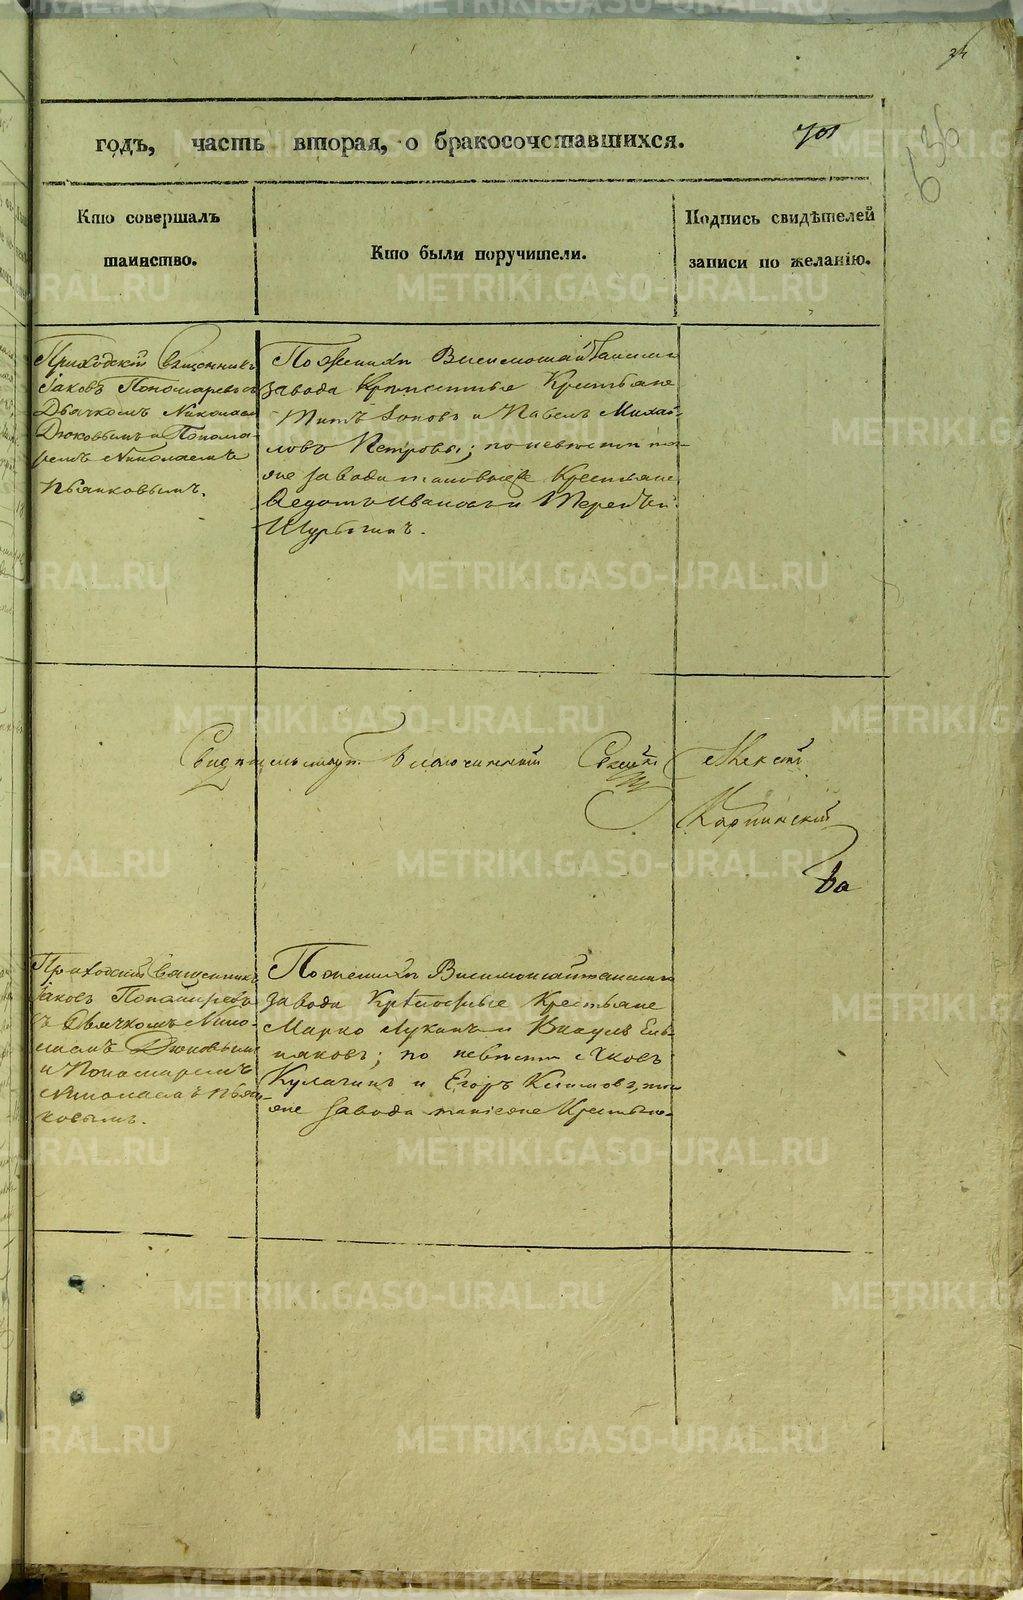 годъ, часть вторая, о бракосочетавшихся.
636
Кто совершалъ
таинство.
Кто были поручители.
Подпись свидѣтелей
записи по желанію.
Приходскій Священникъ
Іаковъ Пономаревъ съ
Дьячкомъ Николаемъ
Дюковымъ и Понома-
ремъ Николаемъ
Пьянковымъ.
По женихѣ Висимошайтанскаго
завода Крѣпостные Крестьяне
Титъ и Павелъ Михай-
ловъ Петровы; по невѣстѣ то-
гоже завода таковые же Крестьяне
Ѳедотъ Ивановъ и Терентій
Шурыгинъ.
Свидѣтельствуетъ Благочинный
Карпинскій
Приходскій Священникъ
Іаковъ Пономаревъ
съ Дьячкомъ Нико-
лаемъ Дюковымъ
и Пономаремъ
Николаемъ Пьян-
ковымъ.
По женихѣ Висимошайтанскаго
завода Крѣпостные Крестьяне
Марко Лукинъ и Викулъ
по невѣстѣ Яковъ
Кулагинъ и Егоръ Климовъ, того
же завода таковые Крестьяне
METRIKI.GASO-URAL.RU